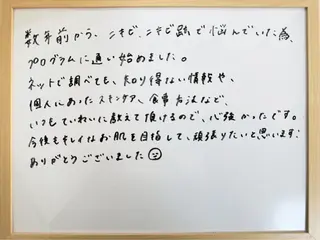 数年前から、ニキビ、ニキビ跡で悩んでいた為、
プログラムに通い始めました。
ネットで調べても、知り得ない情報や、
個人にあったスキンケア、食事方法など、
いつもていねいに教えて頂けるので、心強かったです。
今後もキレイなお肌を目指して、頑張りたいと思います!
ありがとうございました☺